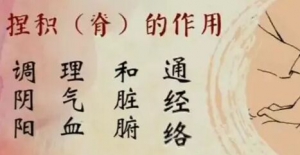 捏积（脊）的作用
调理和通
阴气脏经
阳血腑络